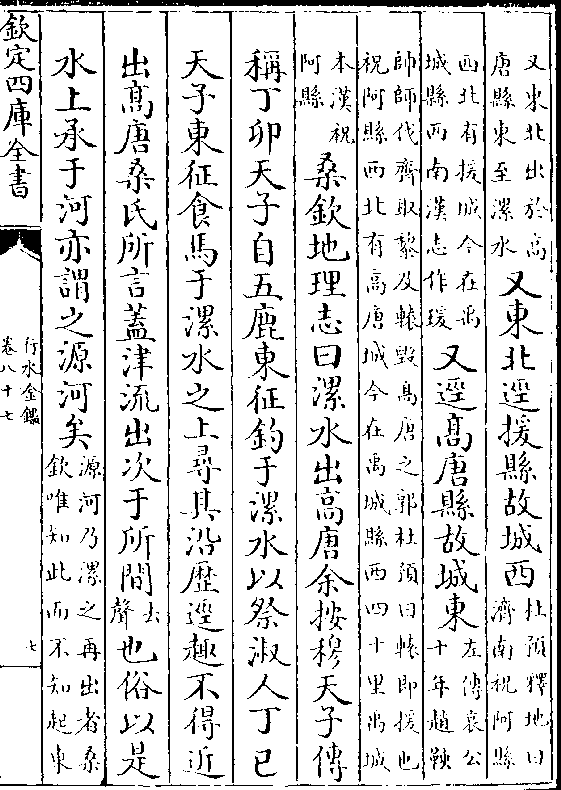 又東北出於髙唐縣東至漯水又東北逕援縣故城西杜預釋地曰濟南祝阿縣
西北有援城今在禹城縣西南漢志作瑗又逕髙唐縣故城東左傳哀公十年趙鞅
帥師伐齊取犂及轅毀髙唐之郭杜預曰轅即援也祝阿縣西北有高唐城今在禹城縣西四十里禹城
本漢祝阿縣桑欽地理志曰漯水出高唐余按穆天子傳
稱丁卯天子自五鹿東征釣于漯水以祭淑人丁已
天子東征食馬于漯水之上尋其沿歴逕趣不得近
出髙唐桑氏所言葢津流出次于所間去聲也俗以是
水上承于河亦謂之源河矣源河乃漯之再出者桑欽唯知此而不知起東
欽定四庫全書
行水金鑑
卷八十七
七